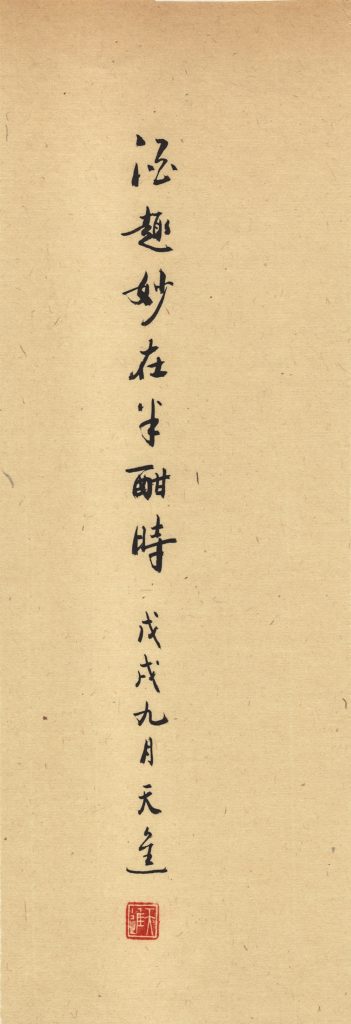 酒趣妙在半酣時戊戌九月天進